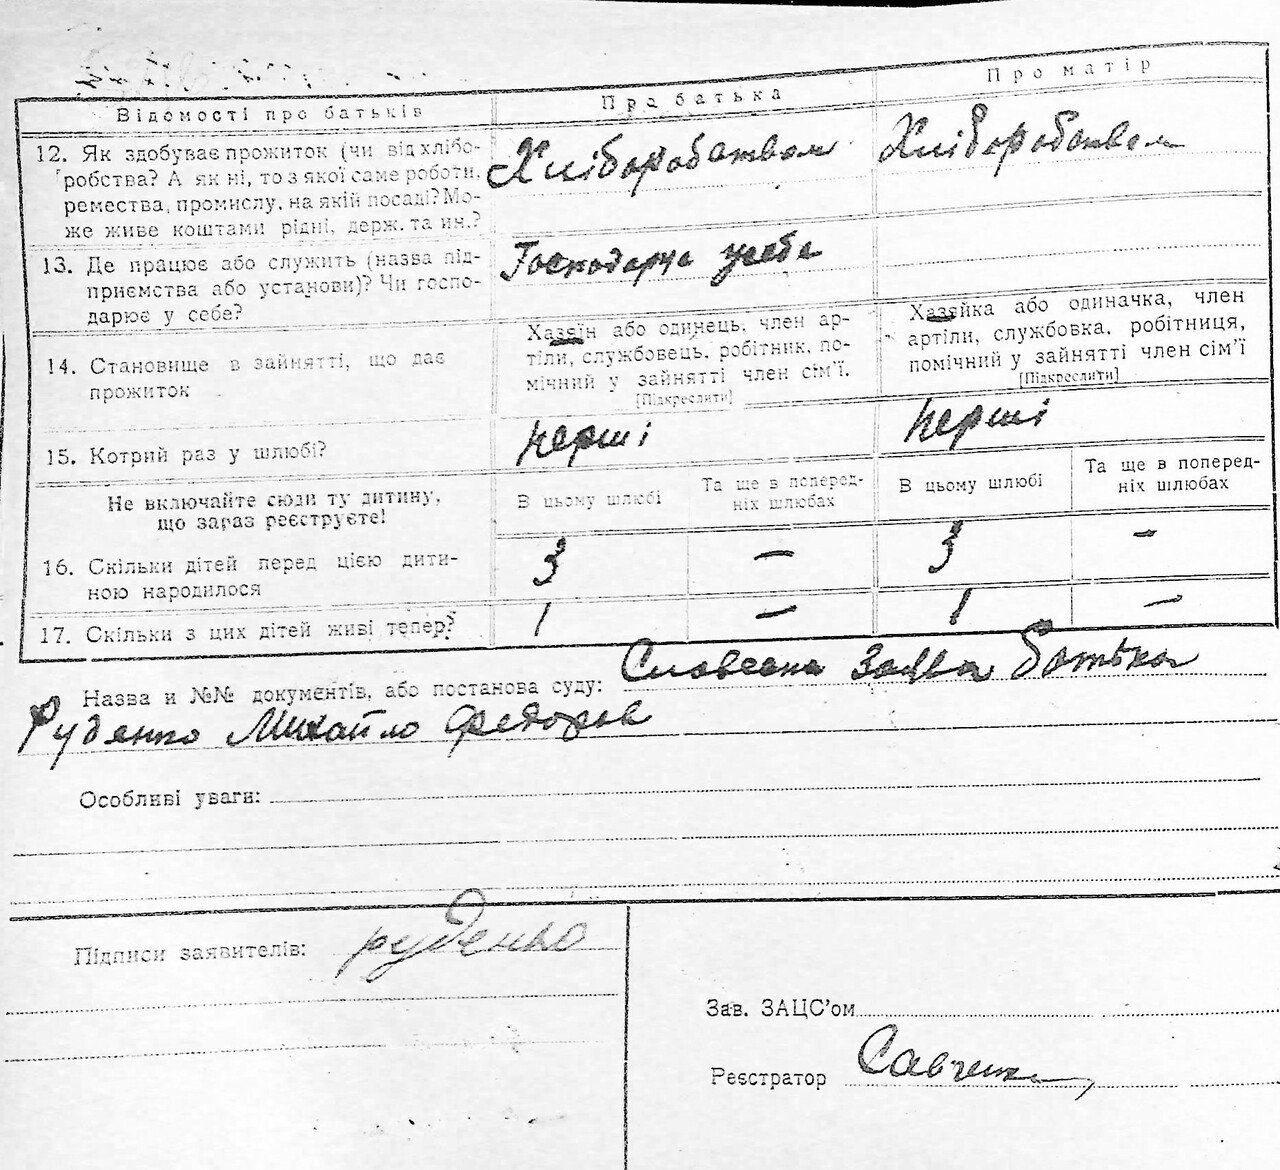 Відомості про батьків
Про батька
Про матір
12. Як здобуває прожиток (чи від хлібо-
робства? А як ні, то з якої саме роботи,
ремества, промислу, на якій посаді? Мо-
же живе коштами рідні, держ. та ин.?
Хліборобством
Хліборобством
13. Де працює або служить (назва під-
приємства або установи)? Чи госпо-
дарює у себе?
Господарче усебе
14. Становище в зайнятті, що дає
прожиток
Хазяїн або одинець, член ар-
тілі, службовець, робітник, по-
мічний у зайнятті член сім'ї.
[Підкреслити]
Хазяйка або одиначка, член
артілі, службовка, робітниця,
помічний у зайнятті член сім'ї
[Підкреслити]
15. Котрий раз у шлюбі?
перші
перші
Не включайте сюди ту дитину,
що зараз реєструєте!
В цьому шлюбі
Та ще в поперед-
ніх шлюбах
В цьому шлюбі
Та ще в поперед-
ніх шлюбах
16. Скільки дітей перед цією дити-
ною народилося
3 — 3 —
17. Скільки з цих дітей живі тепер?
1 — 1 —
Назва и №№ документів, або постанова суду: Словесна заява батька
Руденко Михайло Федоров
Особливі уваги:
Підписи заявителів: руденко
Зав. ЗАЦС'ом
Реєстратор Савченко